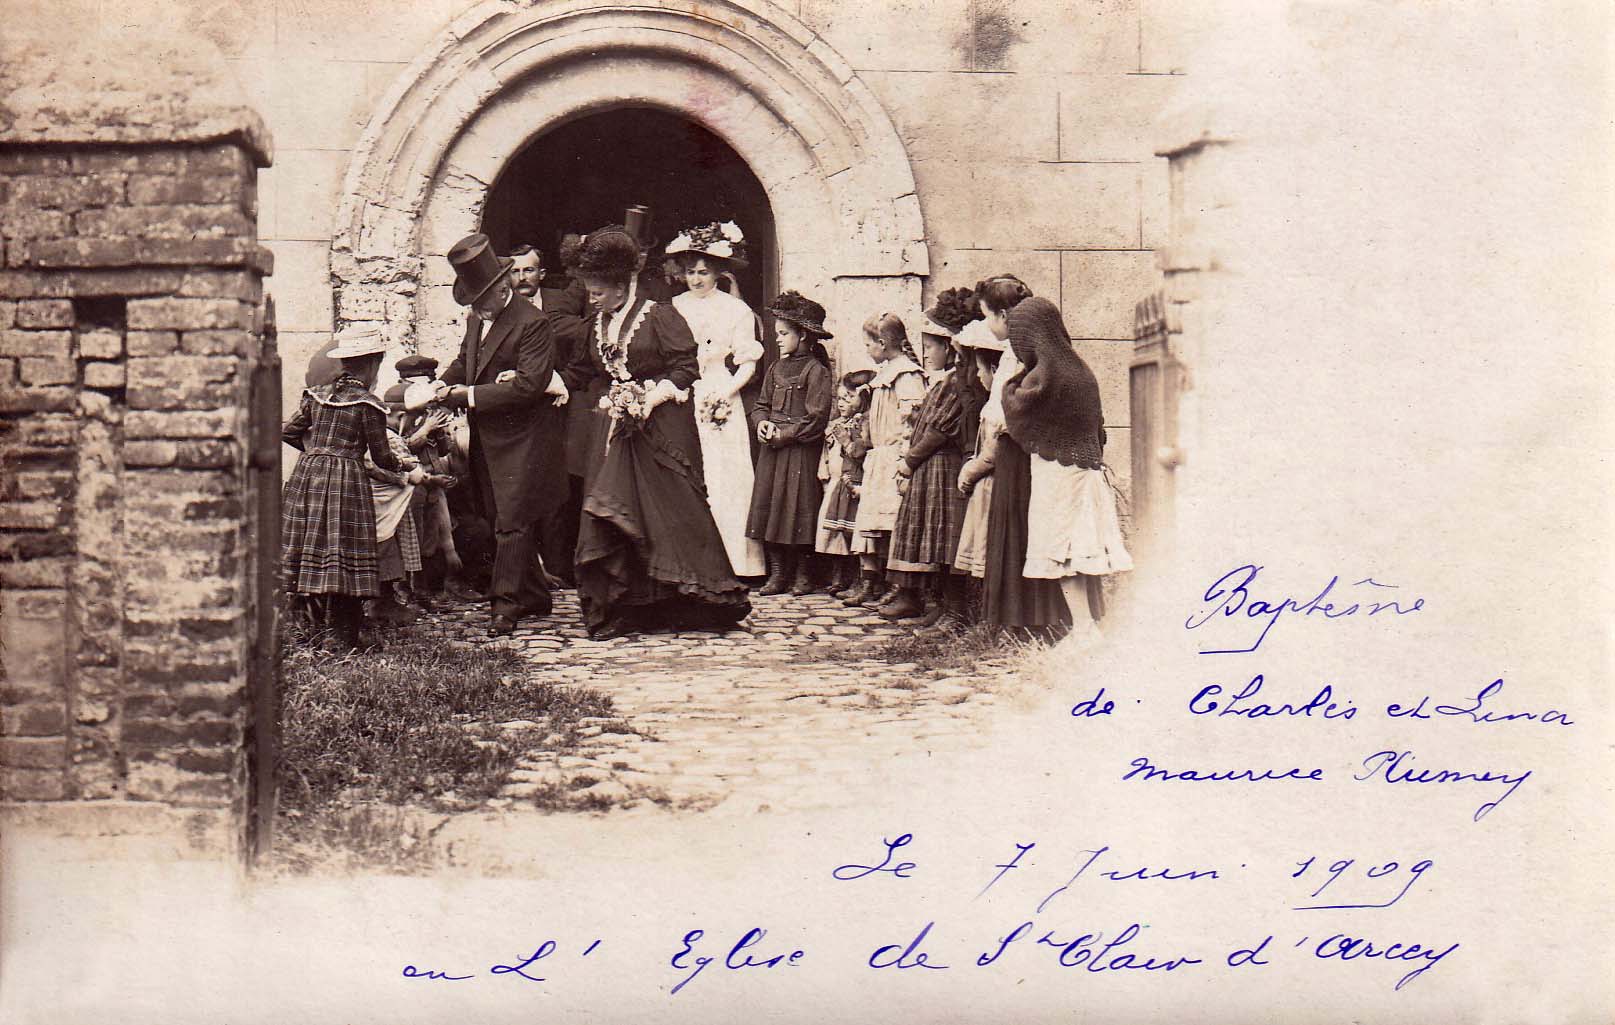 Baptême
de Charles et Lina
Maurice Plumey
Le 7 Juin 1909
en L' Eglise de St Clair d'Arcey